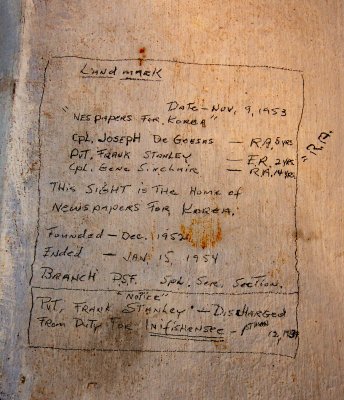 Landmark
Date - Nov, 9, 1953
"Nespapers For Korea"
Cpl. Joseph De — R.A. 8 yrs
Pvt. Frank Stanley — E.R. 2 yrs
Cpl. Gene Sinclair — R.A. yrs.
"R.A.
This Sight is The Home of
Newspapers For Korea.
Founded - Dec. 1952
Ended - Jan. 15, 1954
Branch P.S.F. Spl. Serv. Section.
"Notice"
Pvt. Frank Stanley - Discharged
From Duty For 12, 1954